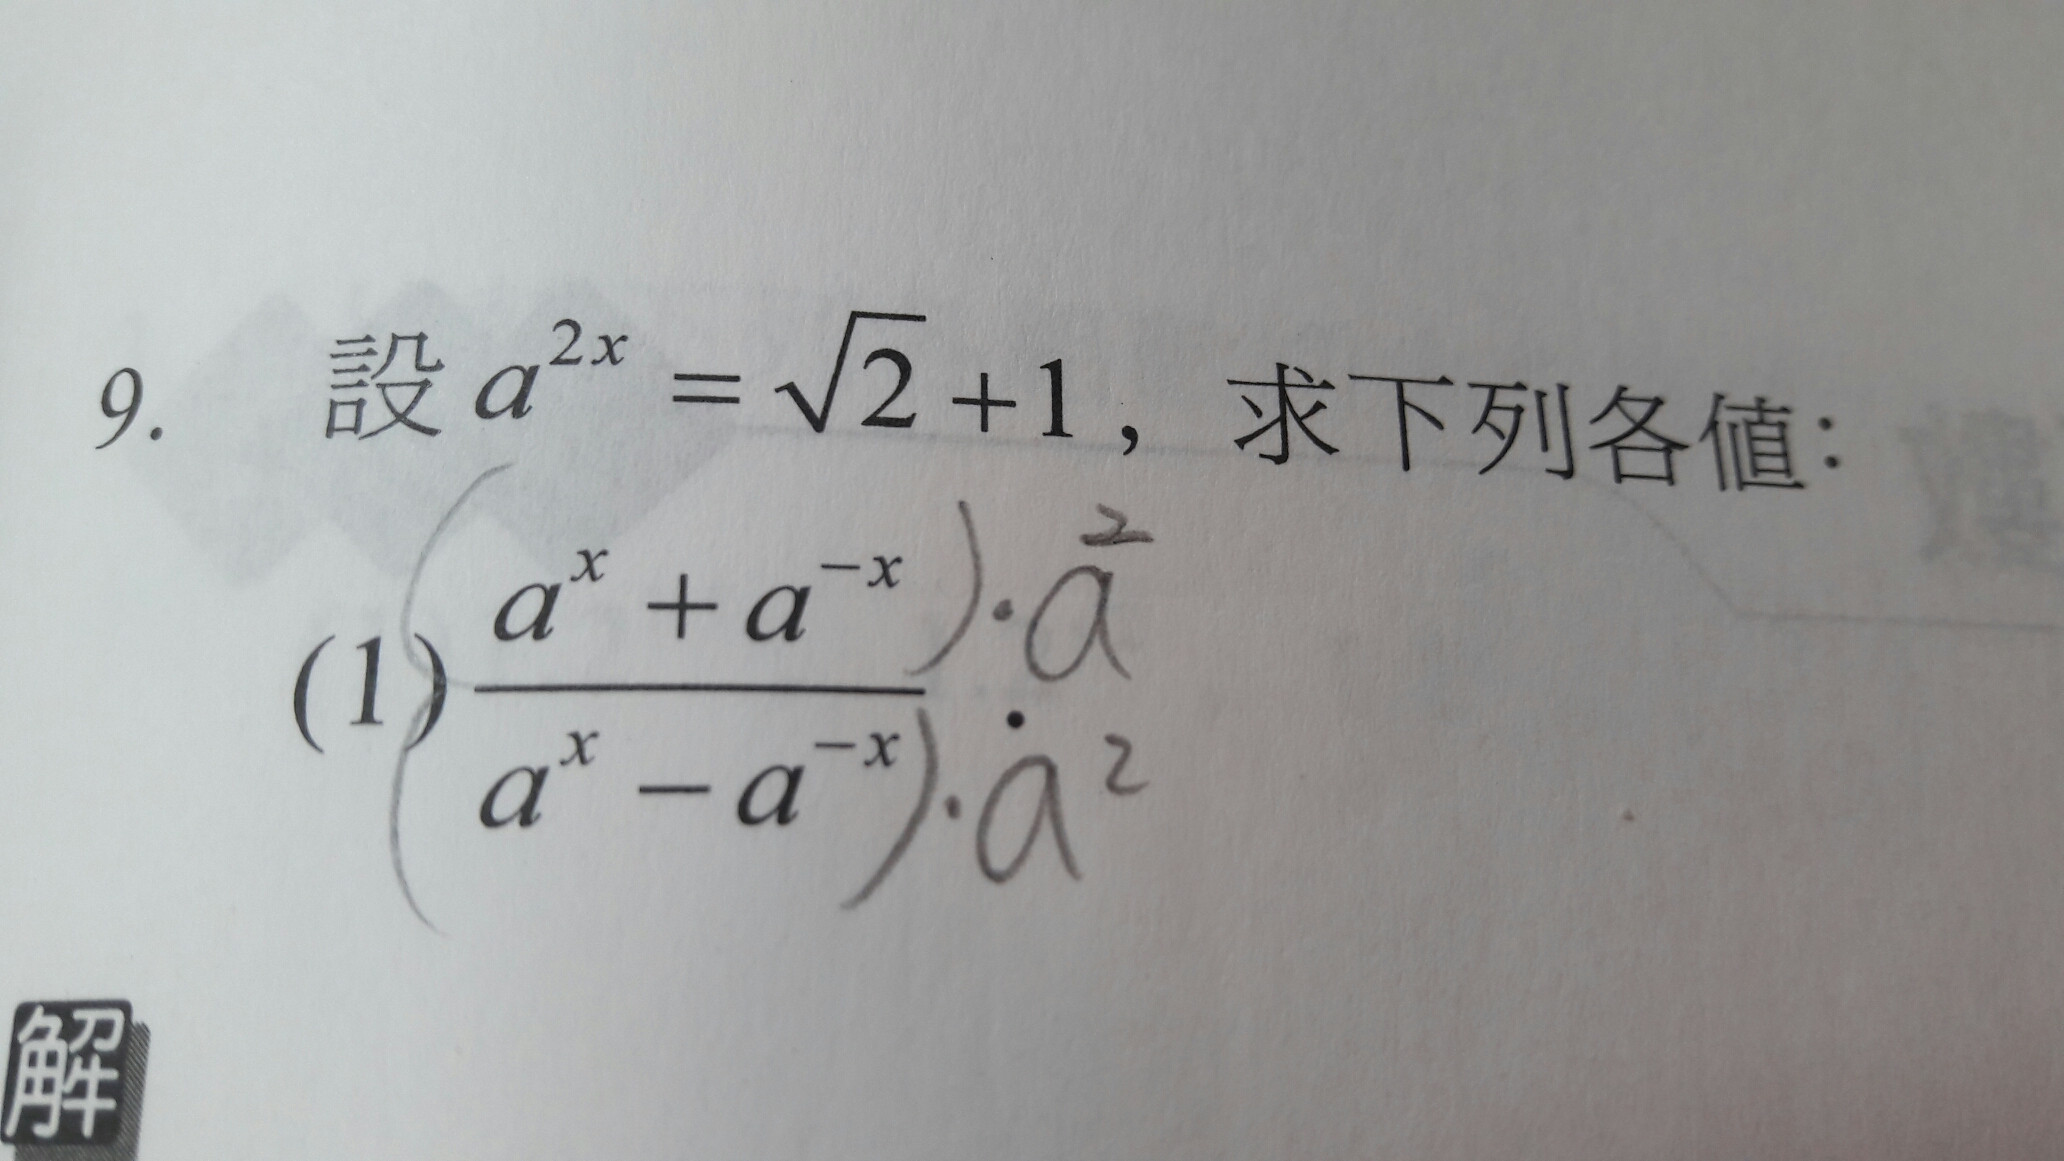 9. 設 a^{2x} = √2 + 1, 求下列各值:
(1) (a^x + a^{-x}) · a^2
(a^x - a^{-x}) · a^2
解